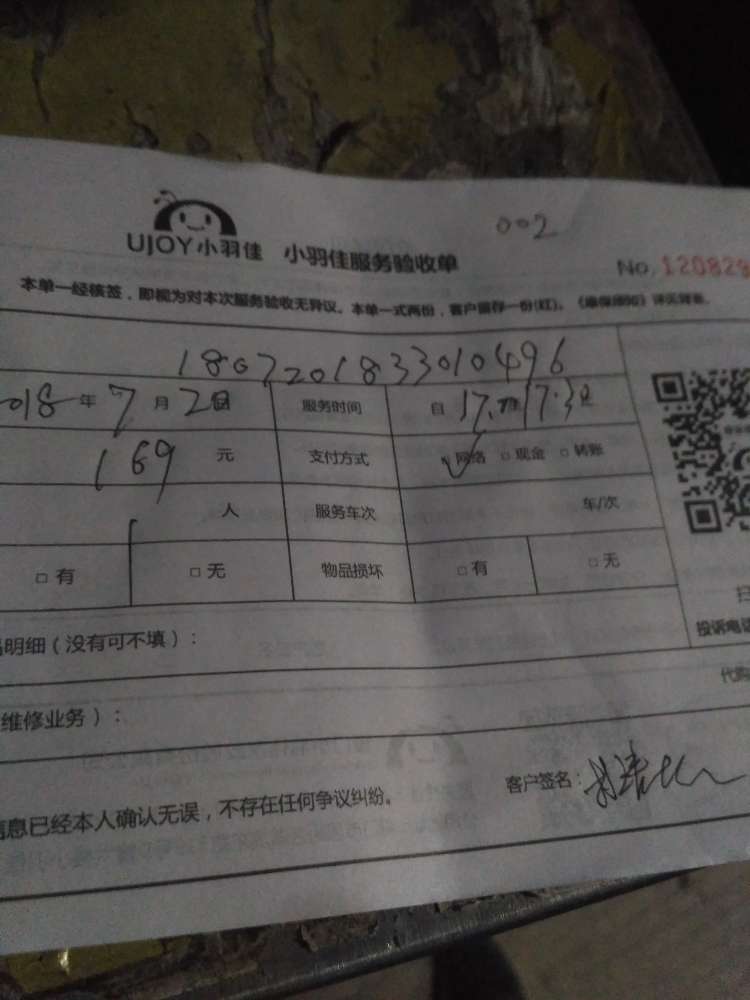 002
UJOY小羽佳 小羽佳服务验收单
No. 120829
本单一经核签，即视为对本次服务验收无异议。本单一式两份，客户留存一份(红)。
1807201833010496
018年7月20日 服务时间 自17. 17.30
169元 支付方式 网络 □现金 □转账
人 服务车次 车/次
□有 □无 物品损坏 □有 □无
明细（没有可不填）：
投诉电话
代购
维修业务）：
客户签名：
信息已经本人确认无误，不存在任何争议纠纷。